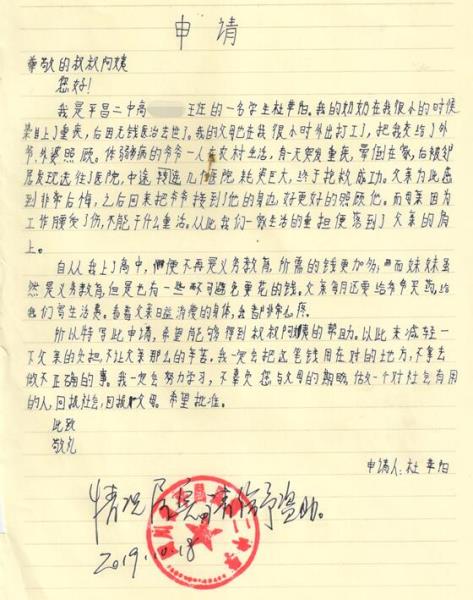 申请
尊敬的叔叔阿姨
您好!
我是平昌二中高 班的一名学生杜幸阳。我的奶奶在我很小的时候
染上了重疾,后因无钱医治去世了。我的父母也在我很小时外出打工了,把我交给了外
爷、外婆照顾。体弱多病的爷爷一人在农村生活,有一天突发重疾,晕倒在家,后被邻
居发现送往了医院,中途转送几个医院,耗资巨大,终于抢救成功。父亲为此感
到非常后悔,之后回来把爷爷接到了他的身边,好更好的照顾他。而母亲因为
工作腰受了伤,不能干什么重活。从此我们一家生活的重担便落到了父亲的肩
上。
自从我上了高中,便不再是义务教育,所需的钱更加多,而妹妹虽
然是义务教育,但是也有一些不可避免要花的钱。父亲每月还要给爷爷买药,给
我们寄生活费。看着父亲日益消瘦的身体,我都非常心疼。
所以特写此申请,希望能够得到叔叔阿姨的帮助。以此来减轻一
下父亲的负担,不让父亲那么的辛苦。我一定会把这笔钱用在对的地方,不拿去
做不正确的事。我一定会努力学习,不辜负您与父母的期盼,做一个对社会有用
的人,回报社会,回报父母。希望批准。
此致
敬礼
申请人:杜幸阳
情况属实,请给予资助。
2019.10.18
二中学